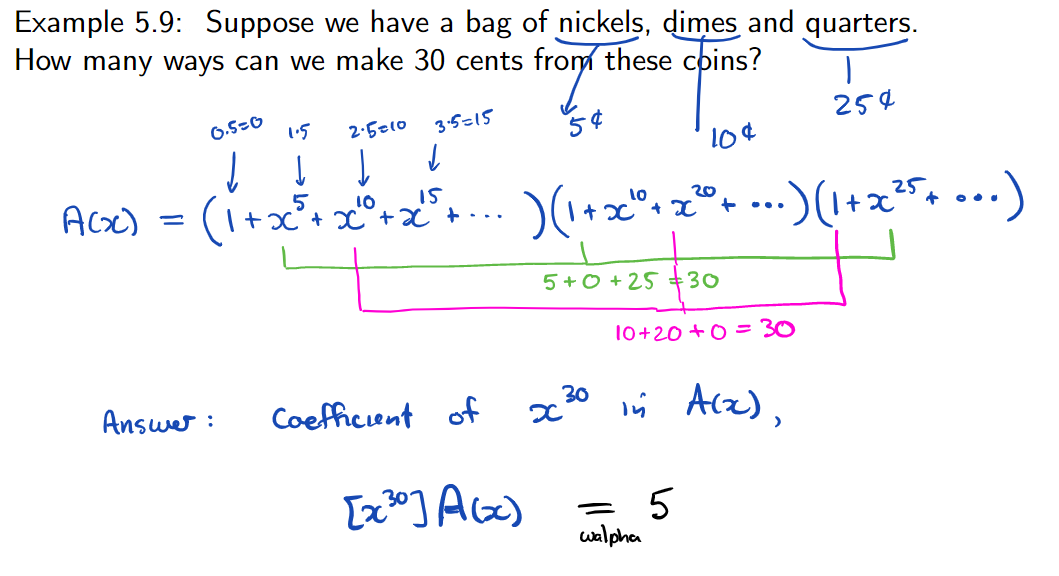 Example 5.9: Suppose we have a bag of nickels, dimes and quarters.
How many ways can we make 30 cents from these coins?
5¢ 10¢ 25¢
0·5=0 1·5 2·5=10 3·5=15
A(x) = (1 + x^5 + x^10 + x^15 + ...)(1 + x^10 + x^20 + ...)(1 + x^25 + ...)
5 + 0 + 25 = 30
10 + 20 + 0 = 30
Answer : Coefficient of x^30 in A(x),
[x^30] A(x) = 5
walpha